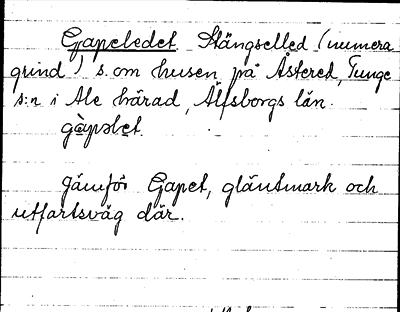 Gapeledet Stängselled (numera
grind) s.om husen på Åstered, Tunge
s:n i Ale härad, Älfsborgs län.
gàpəlet.
Jämför Gapet, gläntmark och
utfartsväg där.